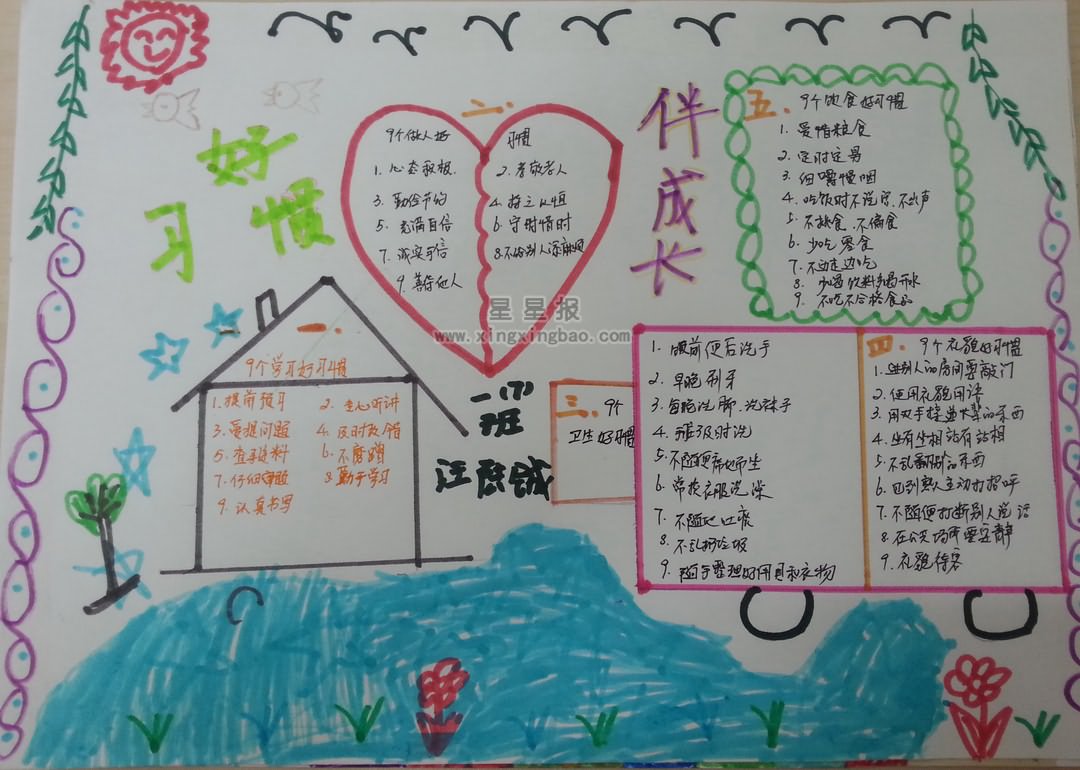 好
习惯
伴成长
一.
9个学习好习惯
1.提前预习 2.专心听讲
3.爱提问题 4.及时改错
5.查字资料 6.不磨蹭
7.仔细审验 8.勤于学习
9.认真书写
二.
9个做人好习惯
1.心态积极. 2.孝敬老人
3.勤俭节约 4.持之以恒
5.充满自信 6.守时惜时
7.诚实守信 8.不给别人添麻烦
9.善待他人
一(7)
班
三.9个
卫生好习惯
1.饭前便后洗手
2.早晚刷牙
3.每晚洗脚.洗袜子
4.及时洗
5.不随便席地而坐
6.常换衣服洗澡
7.不随地吐痰
8.不乱扔垃圾
9.随手整理好用具和衣物
四.9个礼貌好习惯
1.进别人的房间要敲门
2.使用礼貌用语
3.用双手接递长辈的东西
4.坐有坐相站有站相
5.不乱翻别人的东西
6.见到熟人主动打招呼
7.不随便打断别人说话
8.在公共场所要安静
9.礼貌待客
五.9个饮食好习惯
1.爱惜粮食
2.定时定量
3.细嚼慢咽
4.吃饭时不说话.不出声
5.不挑食.不偏食
6.少吃零食
7.不边走边吃
8.少喝饮料多喝开水
9.不吃不合格食品
星星报
www.xingxingbao.com